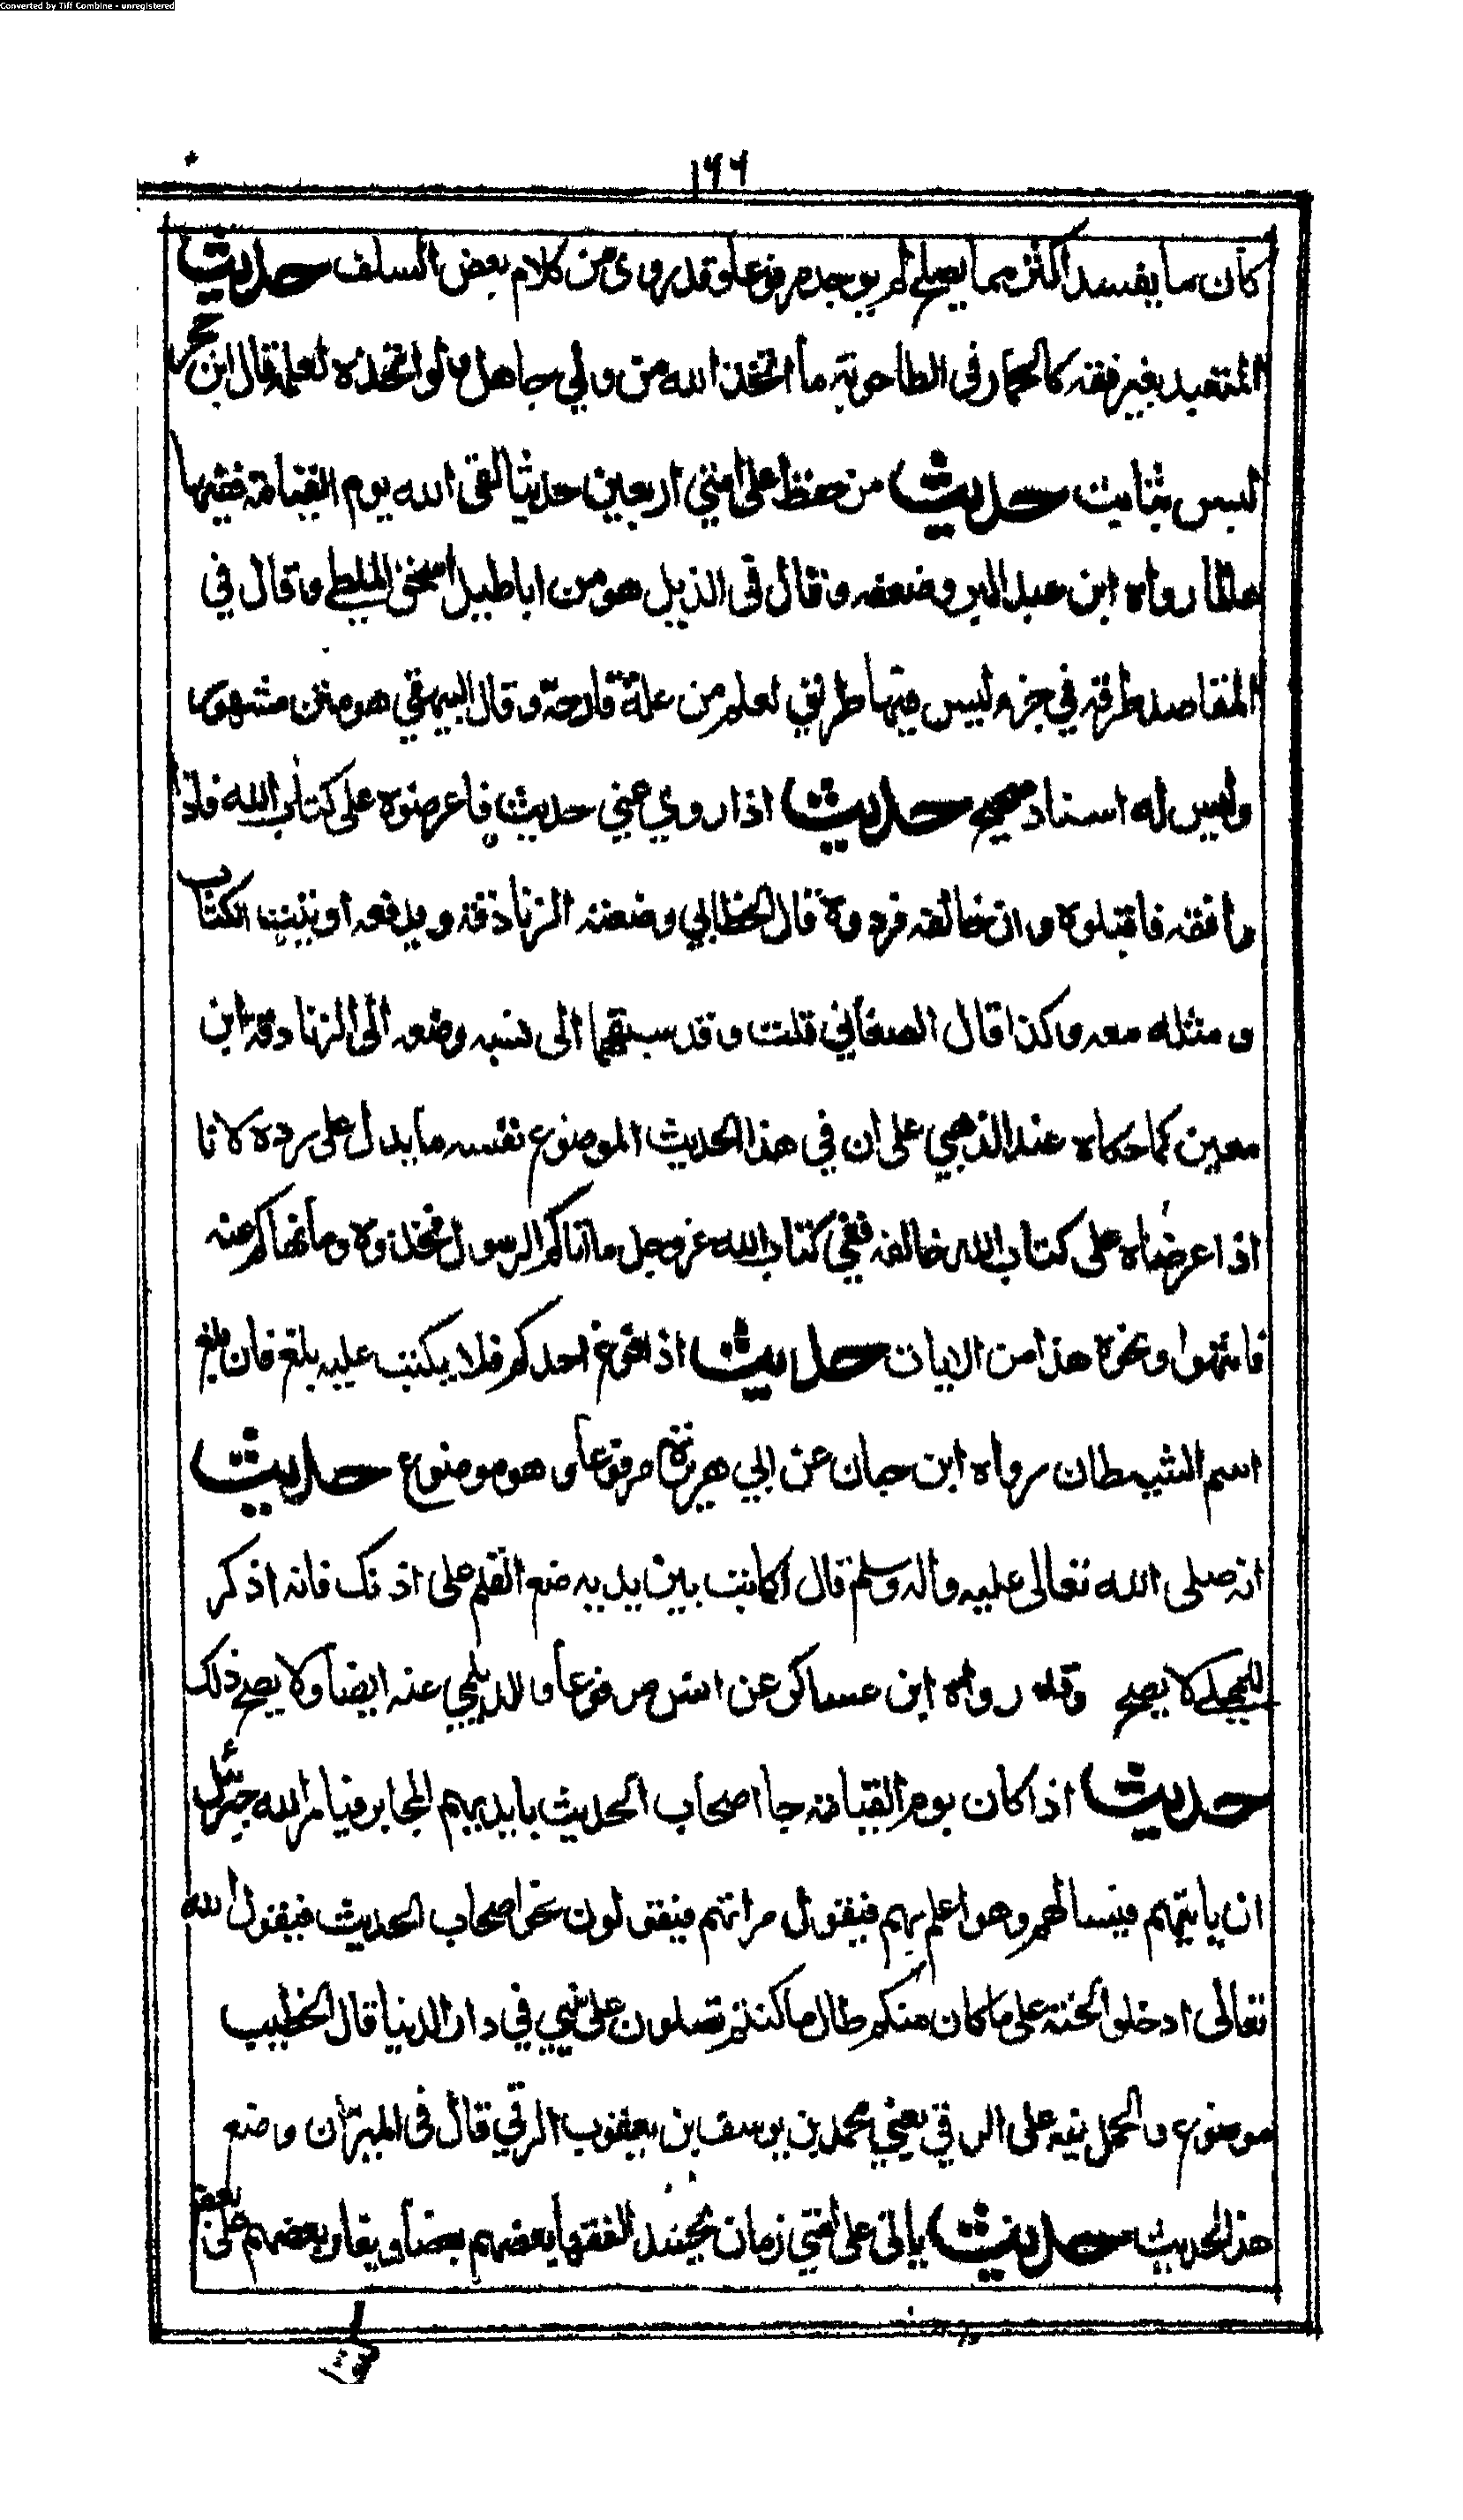 Converted by Tiff Combine - unregistered
١٦٦
كان ما يفسد اكثر مما يصلح لم يوجد مرفوعا وقد روى من كلام بعض السلف حديث
المتعبد بغير فقه كالحمار فى الطاحونة ما اتخذ الله من ولي جاهل ولو اتخذه لعلمه قال ابن حجر
ليس بثابت حديث من حفظ على امتي اربعين حديثا لقى الله يوم القيامة فقيها
عالما رواه ابن عبد البر وضعفه وقال فى الذيل هو من اباطيل اسحق الملطي وقال في
المقاصد طرقه في جزء ليس فيها طريق تسلم من علة قادحة وقال البيهقي هو متن مشهور
وليس له اسناد صحيح حديث اذا روي عني حديث فاعرضوه على كتاب الله فاذا
وافقه فاقبلوه وان خالفه فردوه قال الخطابي وضعته الزنادقة ويدفعه اوتيت الكتاب
ومثله معه وكذا قال الصغاني قلت وقد سبقهما الى نسبه وضعه الى الزنادقة ابن
معين كما حكاه عنه الذهبي على ان في هذا الحديث الموضوع نفسه ما يدل على رده لانا
اذا عرضناه على كتاب الله خالفه ففي كتاب الله عزوجل ما اتاكم الرسول فخذوه وما نهاكم عنه
فانتهوا ونحوه هذا من الايات حديث اذا فرغ احدكم فلا يكتب عليه بلغ فان بلغ
اسم الشيطان رواه ابن حبان عن ابي هريرة مرفوعا وهو موضوع حديث
انه صلى الله تعالى عليه واله وسلم قال لكاتب بين يديه ضع القلم على اذنك فانه اذكر
للمملي لا يصح وقد رواه ابن عساكر عن انس مرفوعا والديلمي عنه ايضا ولا يصح ذلك
حديث اذا كان يوم القيامة جا اصحاب الحديث بايديهم المحابر فيامر الله جبرئيل
ان ياتيهم فيسالهم وهو اعلم بهم فيقول من انتم فيقولون نحن اصحاب الحديث فيقول الله
تعالى ادخلوا الجنة على ما كان منكم طال ما كنتم تصلون على نبيي في دار الدنيا قال الخطيب
موضوع والحمل فيه على الرقي يعني محمد بن يوسف بن يعقوب الرقي قال فى الميزان وضع
هذا الحديث حديث ياتى على امتي زمان يحسد الفقها بعضهم بعضا ويغار بعضهم على بعض